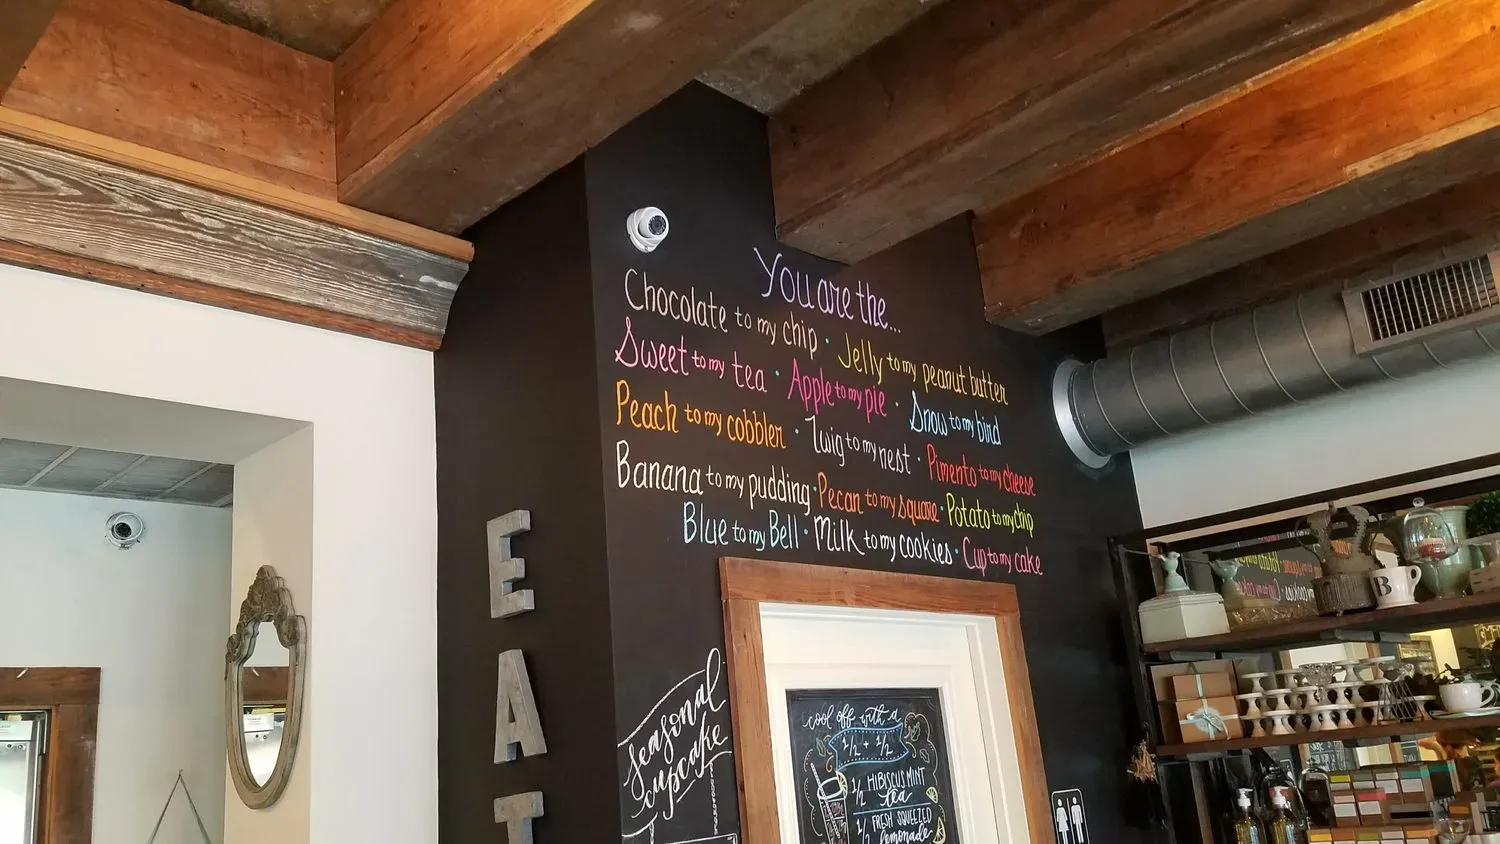 You are the...
Chocolate to my chip · Jelly to my peanut butter
Sweet to my tea · Apple to my pie · Snow to my bird
Peach to my cobbler · Twig to my nest · Pimento to my cheese
Banana to my pudding · Pecan to my square · Potato to my chip
Blue to my Bell · Milk to my cookies · Cup to my cake
EAT
seasonal
cupcake
cool off with a
1/2 + 1/2
1/2 HIBISCUS MINT
tea
1/2 FRESH SQUEEZED
lemonade
B